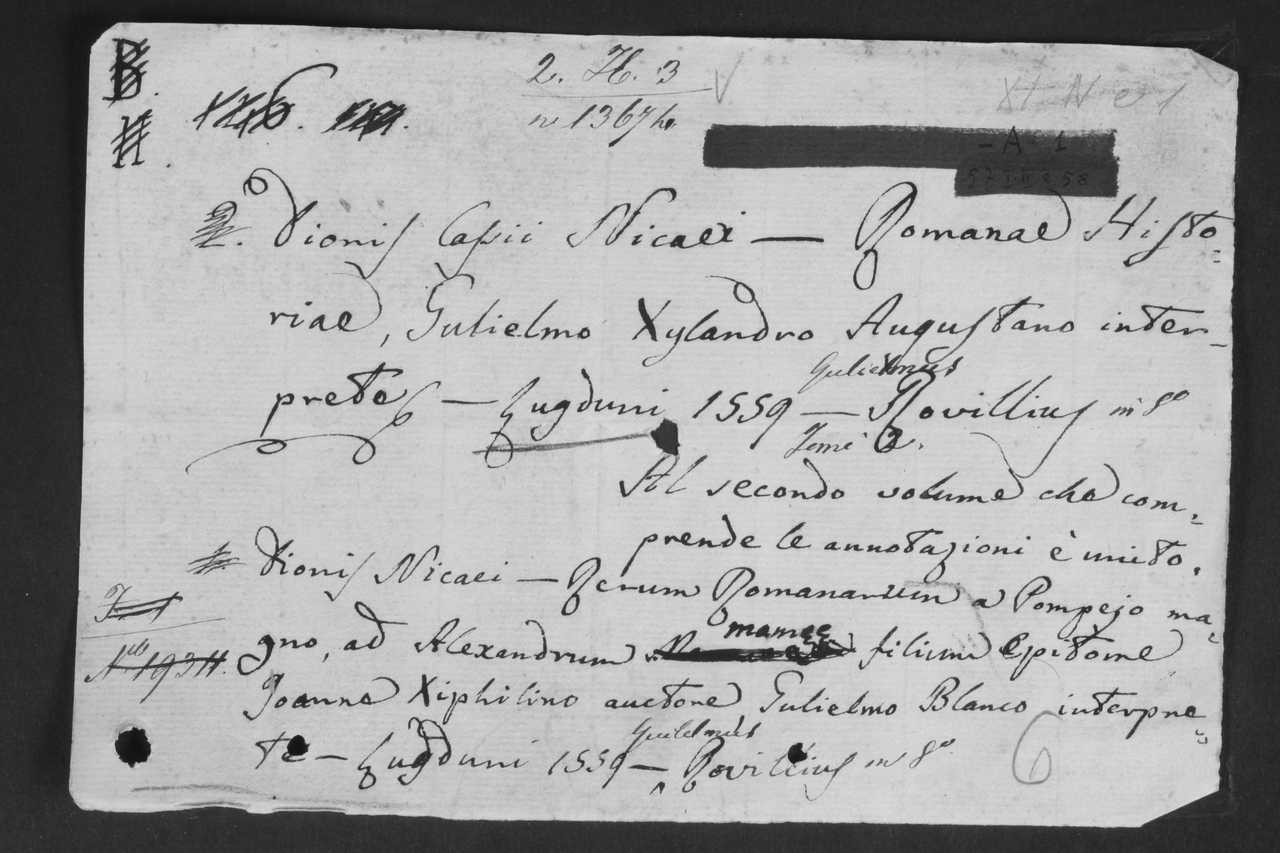 B.
H.
2. H. 3
n. 1367
XI N e 1
- A - 1
2. Dionis Cassii Nicaei — Romanae Histo=
riae, Gulielmo Xylandro Augustano inter-
prete — Lugduni 1559 — Gulielmus Rovillius in 8º
Tomi 2.
Al secondo volume che com=
prende le annotazioni è unito.
Dionis Nicaei — Rerum Romanarum a Pompejo ma=
gno, ad Alexandrum mameę filium Epitome
Joanne Xiphilino auctore Gulielmo Blanco interpre=
te — Lugduni 1559 — Guilelmus Rovillius in 8º
Nº 193H.